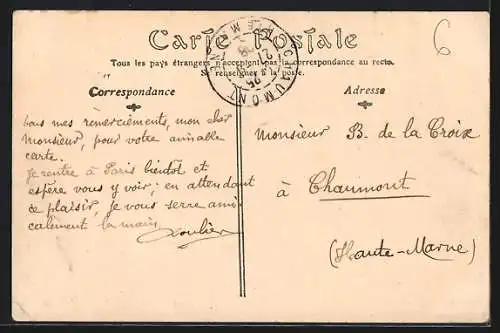 Carte Postale
Tous les pays étrangers n'acceptent pas la correspondance au recto.
Se renseigner à la poste.
Correspondance
Adresse
6
CHAUMONT
Tous mes remerciements, mon cher
Monsieur, pour votre aimable
carte.
Je rentre à Paris bientôt et
espère vous y voir; en attendant
ce plaisir, je vous serre ami
calement la main.
Monsieur B. de la Croix
à Chaumont
(Haute-Marne)